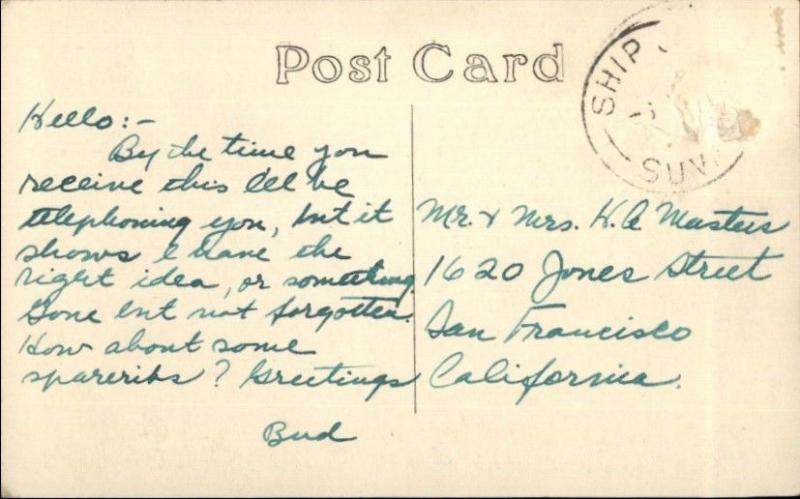 Post Card
SHIP
SUV
Hello:-
By the time you
receive this I'll be
telephoning you, but it
shows I have the
right idea, or something.
Gone but not forgotten.
How about some
spareribs? Greetings
Bud
Mr. & Mrs. H. A Masters
1620 Jones Street
San Francisco
California.